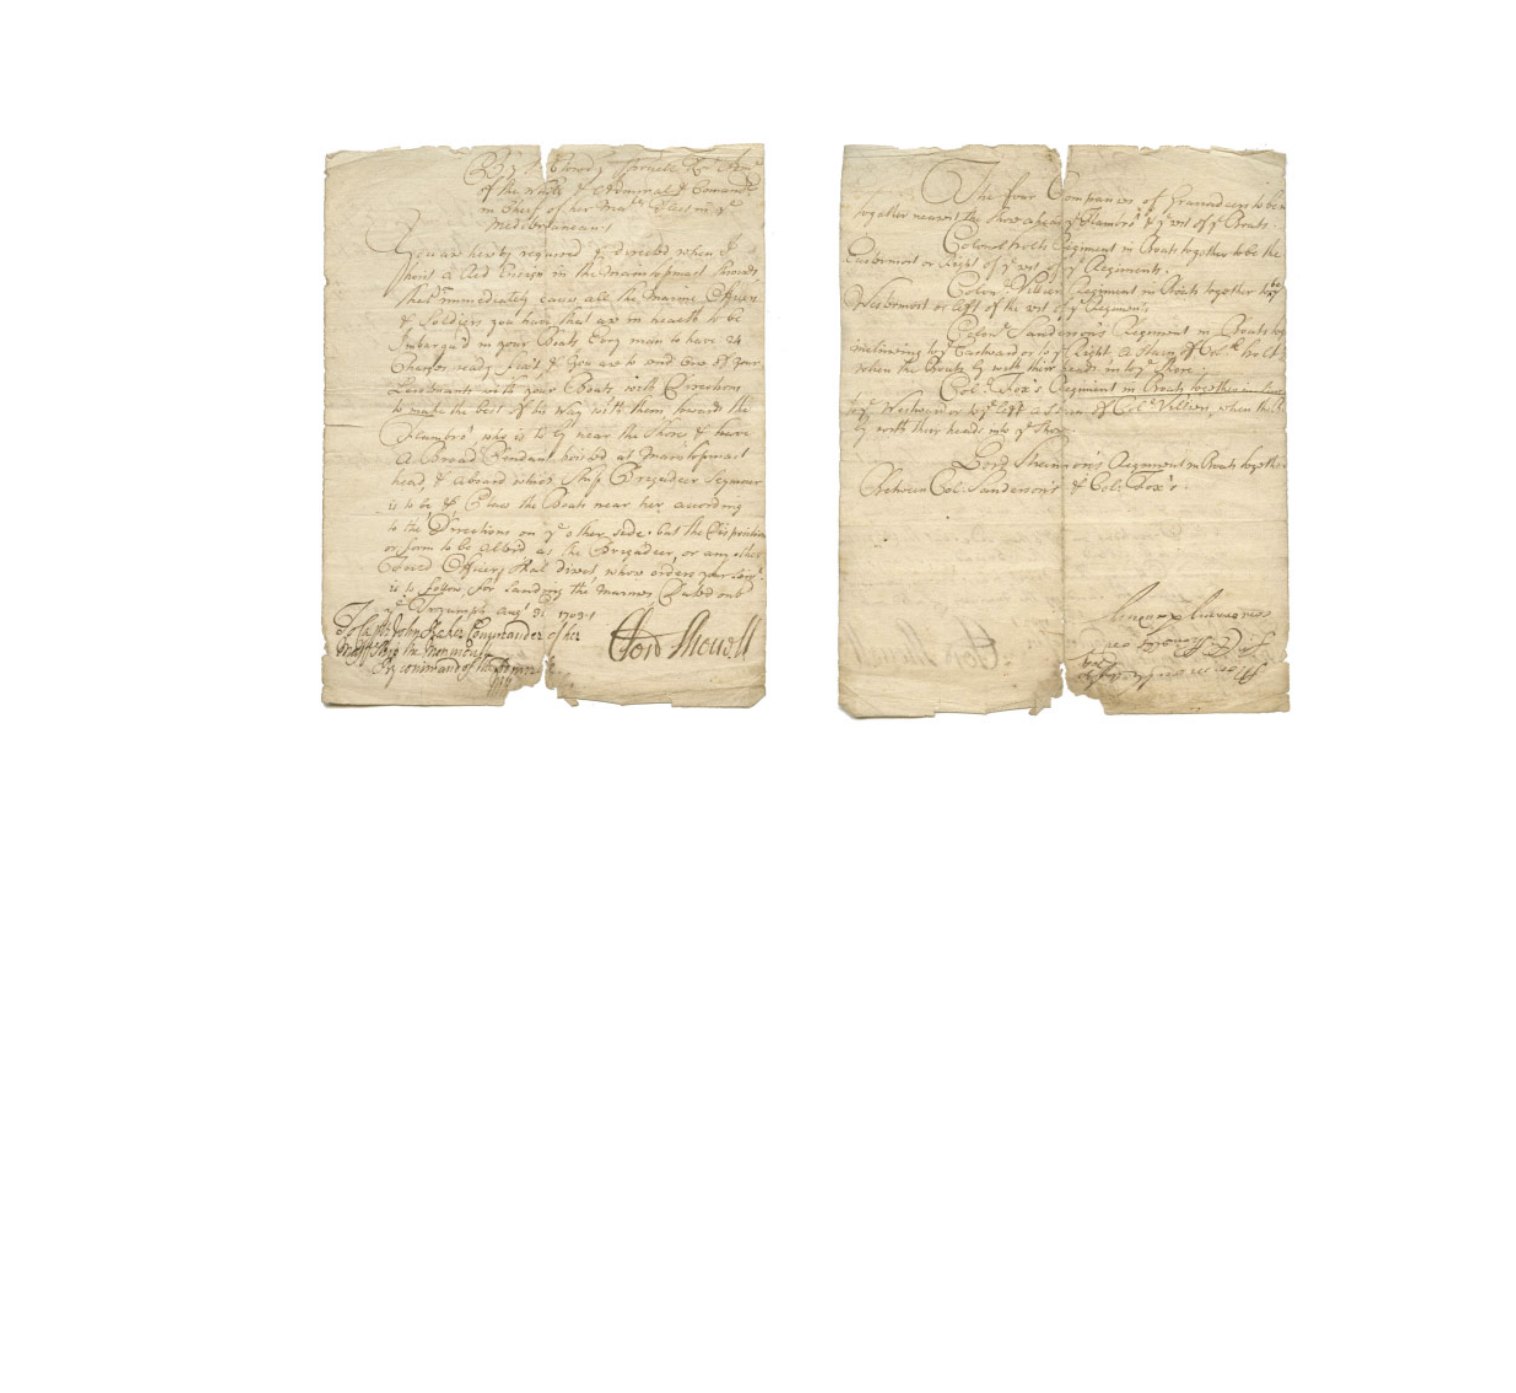 By Sr Clowdy Shovell Knt Adm:ll
of the White & Admirall & Comandr
in Cheif of her Matys Fleet in ye
Mediteranean:/
You are hereby required & directed when I
hoist a Red Ensign in the maintopmast shrouds
that immediately cause all the Marine Officers
& Soldiers you have that are in health to be
Imbarqu'd in your Boats Every man to have 24
Charges ready fix't, & you are to send One of your
Lieutenants with your Boats with Directions
to make the best of his way with them towards the
Flambro' who is to ly near the Shore & have
a Broad Pendant hoisted at Maintopmast
head, & aboard which Ship Brigadeer Seymour
is to be & Place the Boats near her according
to the Directions on ye other side. but the Disposition
or form to be alter'd as the Brigadeer, or any other
Officers shal direct, whose orders your Lieut:
is to follow for Landing the Marines, Dated on bd
ye Tryumph Augt 31 1703:/
Clowd Shovell
To Capt: John Baker Commander of her
Matys Ship the Monmouth
By command of the Admirall
The four Companies of Granadeers to be in
together nearest the Shore ahead ye Flambro' & ye rest of ye Boats.
Colonel holts Regiment in Boats together to be the
Eastermost or Right of ye rest of ye Regiments.
Colon:l Villiers Regiment in Boats together to be
Westermost or left of the rest of ye Regiments
Colon:l Sanderson's Regiment in Boats to
inclineing to ye Eastward or to ye Right, a Stern of Col:ll holt
when the Boats ly with their heads in to ye Shore.
Col:l Fox's Regiment in Boats together in
to ye Westward or to ye left a Stern of Col:l Villiers, when the
ly with their heads into ye Shore.
Lord Shannon's Regiment in Boats together
Between Col: Sanderson's & Col: Fox's.